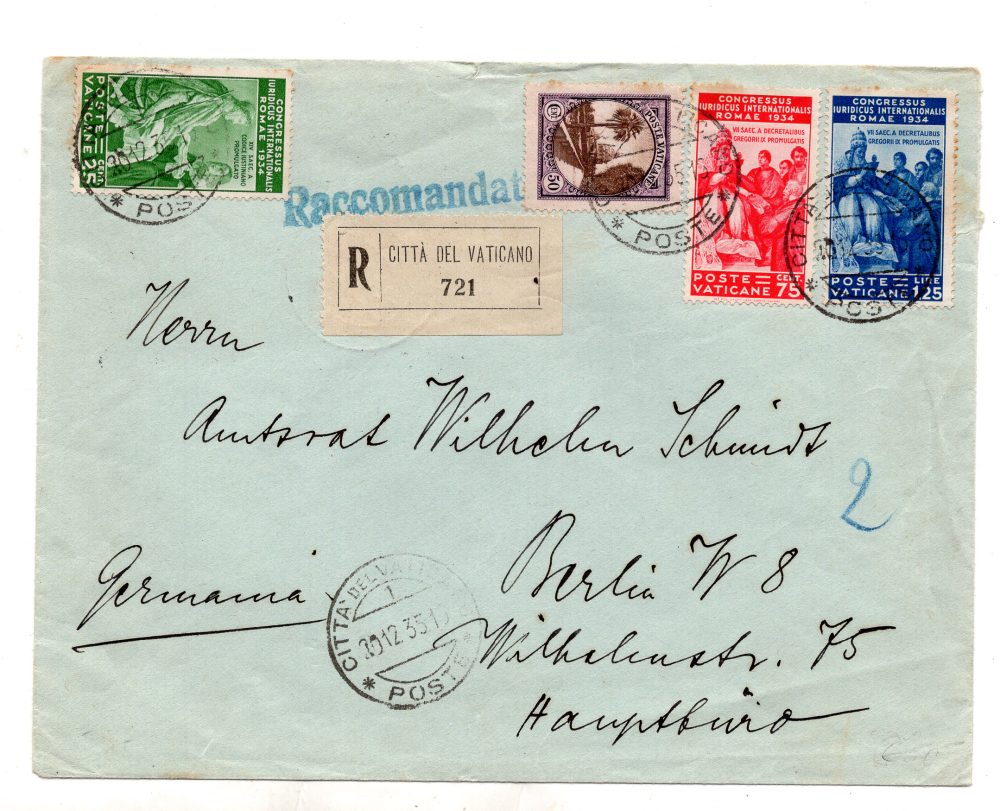 CONGRESSUS
IURIDICUS INTERNATIONALIS
ROMAE 1934
XIV SAEC. A
CODICE IUSTINIANO
PROMULGATO
POSTE CENT.
VATICANE 25
* POSTE
Raccomandat
CENT. 50
POSTE VATICANE
* POSTE *
CONGRESSUS
IURIDICUS INTERNATIONALIS
ROMAE 1934
VII SAEC. A DECRETALIBUS
GREGORII IX PROMULGATIS
POSTE CENT.
VATICANE 75
CONGRESSUS
IURIDICUS INTERNATIONALIS
ROMAE 1934
VII SAEC. A DECRETALIBUS
GREGORII IX PROMULGATIS
POSTE LIRE
VATICANE 1,25
CITTA' DEL VATICANO
* POSTE *
R
CITTÀ DEL VATICANO
721
Herrn
Amtsrat Wilhelm Schmidt
2
Berlin W 8
Germania
CITTA' DEL VATICANO
1
20 12 35
* POSTE *
Wilhelmstr. 75
Hauptbüro